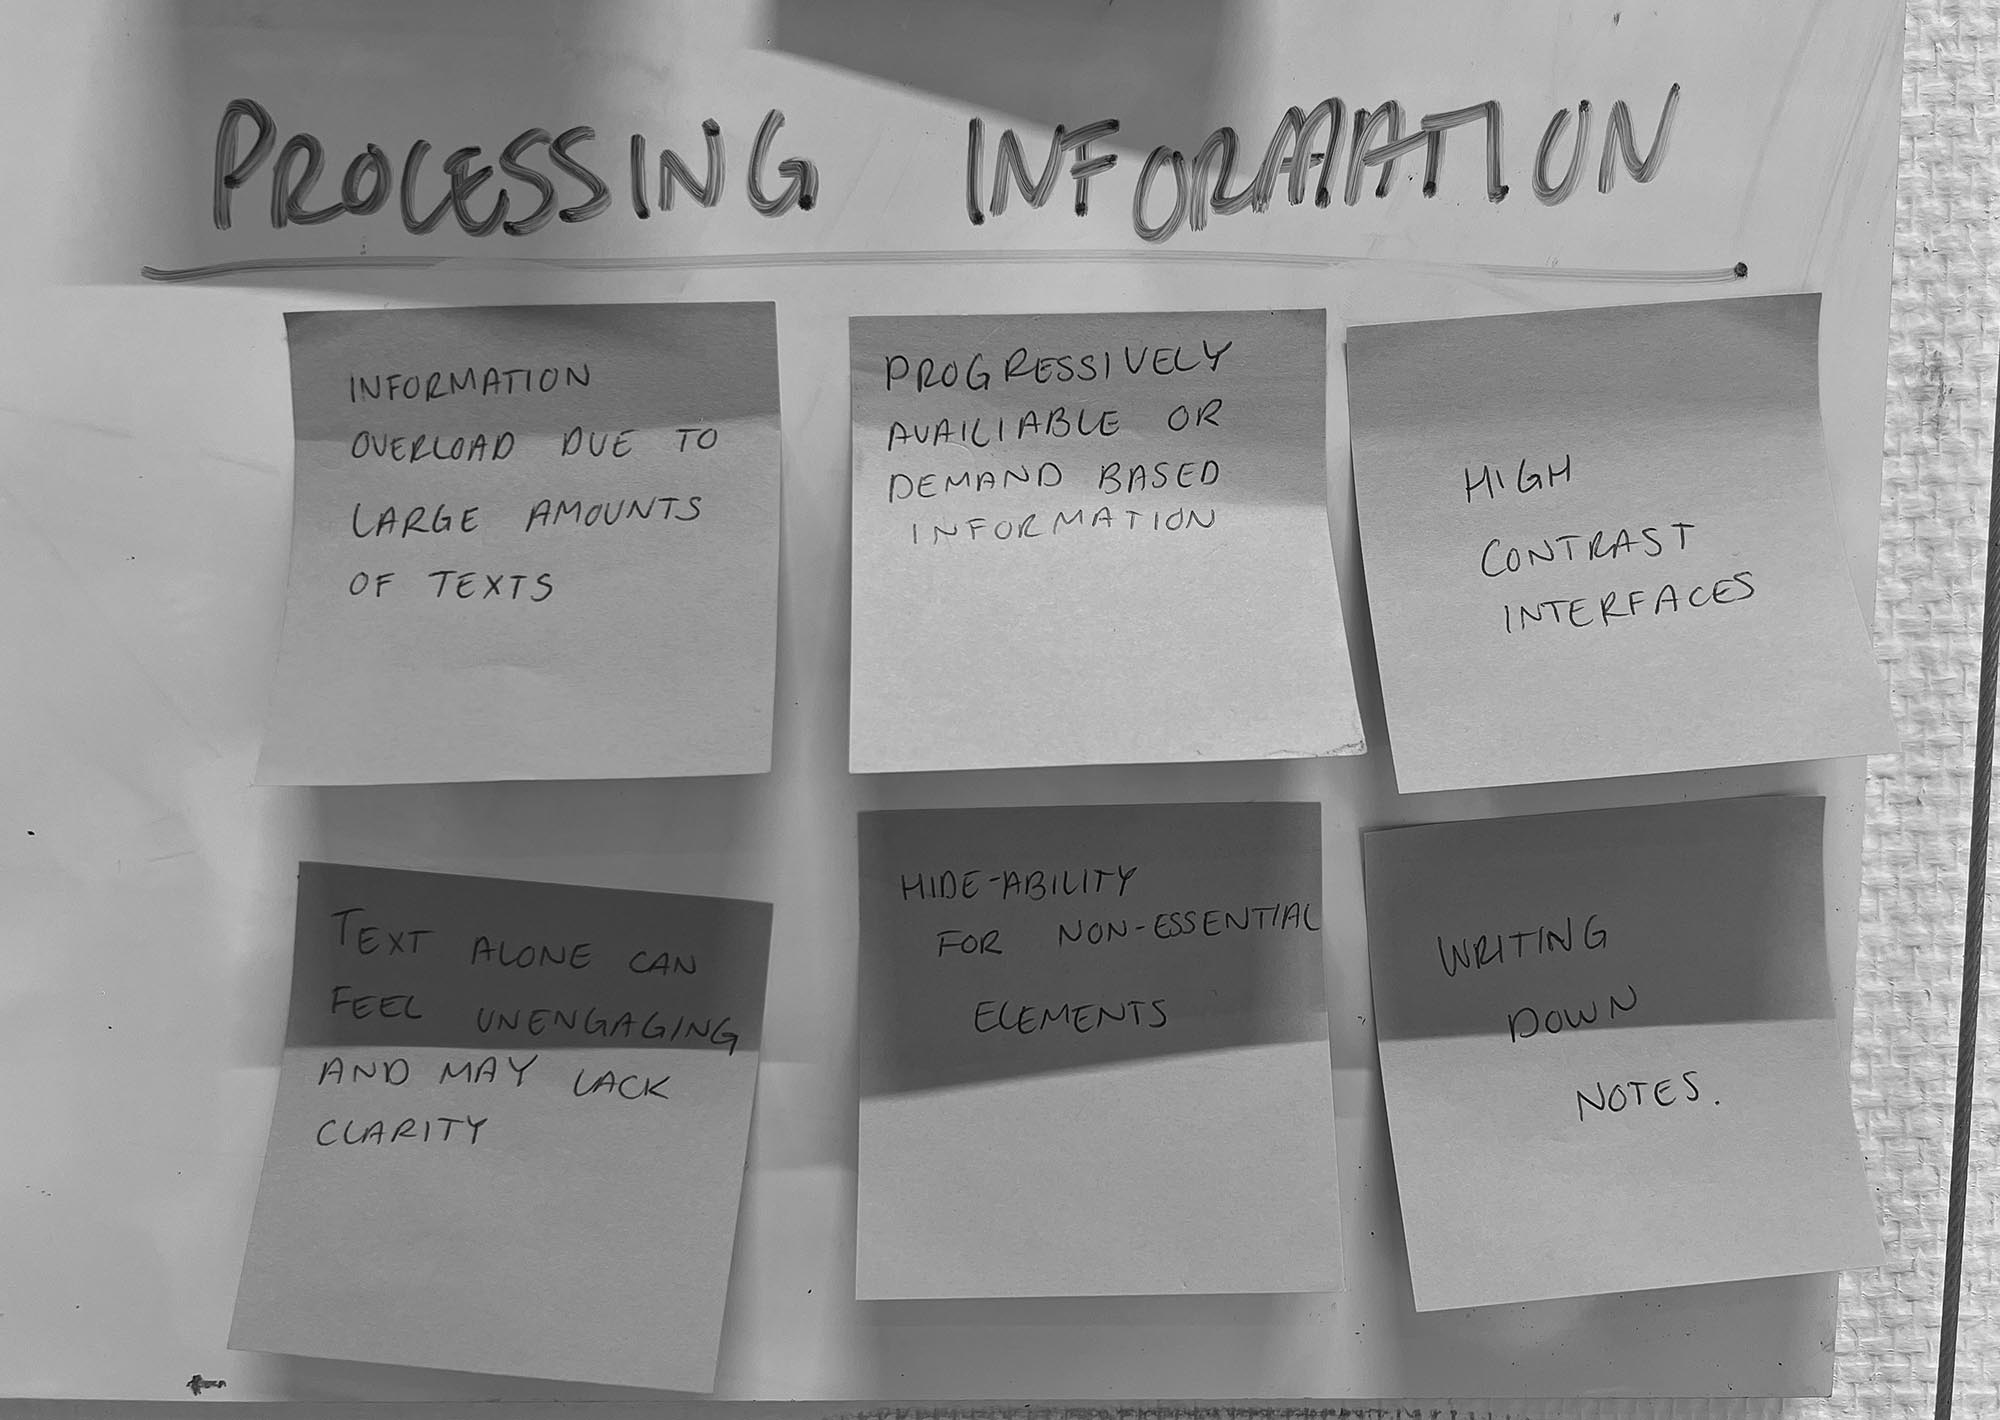 PROCESSING INFORMATION
INFORMATION
OVERLOAD DUE TO
LARGE AMOUNTS
OF TEXTS
PROGRESSIVELY
AVAILIABLE OR
DEMAND BASED
INFORMATION
HIGH
CONTRAST
INTERFACES
TEXT ALONE CAN
FEEL UNENGAGING
AND MAY LACK
CLARITY
HIDE-ABILITY
FOR NON-ESSENTIAL
ELEMENTS
WRITING
DOWN
NOTES.